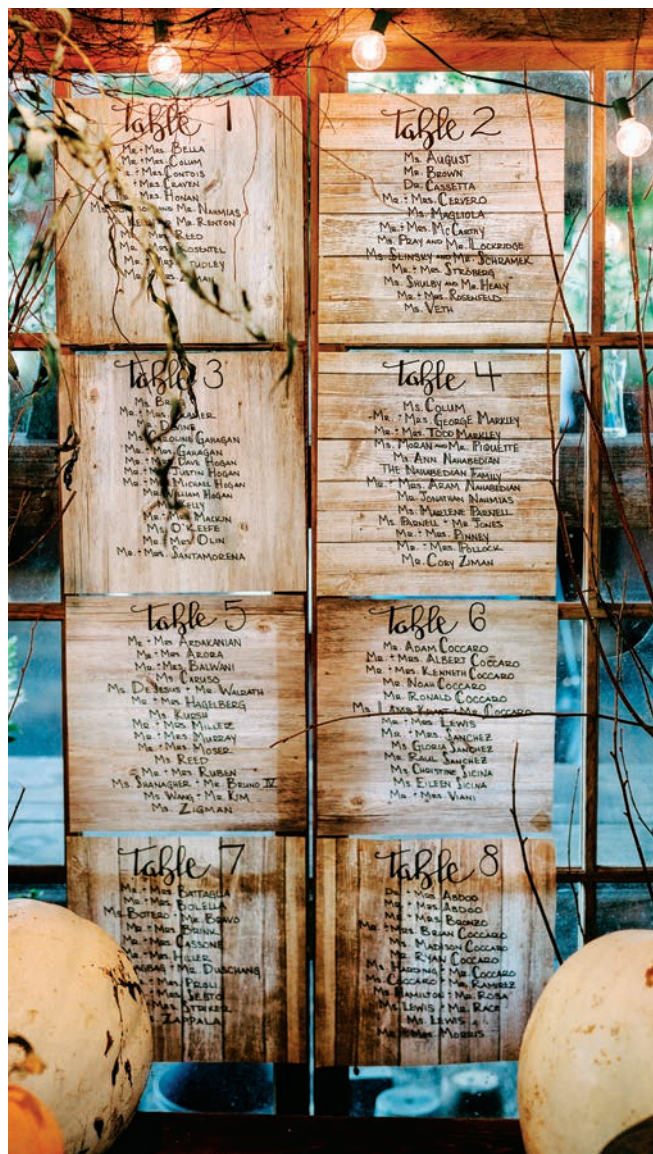 Table 1
Mr. + Mrs. Bella
Mr. + Mrs. Colum
+ Mrs. Contois
+ Mrs. Craven
Mrs. Honan
and Mr. Nahmias
Mr. Renton
Mrs. Reed
Mr. Mrs. Rosentel
Mr. +
Mr.
Table 2
Ms. August
Mr. Brown
Dr. Cassetta
Mr. + Mrs. Cervero
Ms. Magliola
Mr. + Mrs. McCarthy
Ms. Pray and Mr. Lockridge
Ms. Slinsky and Mr. Schramek
Mr. + Mrs. Ströberg
Ms. Shulby and Mr. Healy
Mr. + Mrs. Rosenfeld
Ms. Veth
Table 3
Ms.
Mr. + Mrs.
Ms. Devine
Ms. Caroline Gahagan
Mr. + Mrs. Gahagan
Mr. + Mrs. Dave Hogan
Mr. + Mrs. Justin Hogan
Mr. + Mrs. Michael Hogan
Mr. William Hogan
Ms. Kelly
Mr. + Mrs. Mackin
Ms. O'Keefe
Mr. + Mrs. Olin
Mr. + Mrs. Santamorena
Table 4
Ms. Colum
Mr. + Mrs. George Markley
Mr. + Mrs. Todd Markley
Ms. Moran and Mr. Piquette
Ms. Ann Nahabedian
The Nahabedian Family
Mr. + Mrs. Aram Nahabedian
Mr. Jonathan Nahmias
Ms. Marlene Parnell
Ms. Parnell + Mr. Jones
Mr. + Mrs. Pinney
Mr. + Mrs. Pollock
Mr. Cory Ziman
Table 5
Mr. + Mrs. Ardakanian
Mr. + Mrs. Arora
Mr. + Mrs. Balwani
Ms. Caruso
Ms. DeJesus + Mr. Walrath
Mr. + Mrs. Hagelberg
Ms. Kursh
Mr. + Mrs. Millerz
Mr. + Mrs. Murray
Mr. + Mrs. Moser
Ms Reed
Mr. + Mrs. Ruben
Ms. Shanagher + Mr. Bruno IV
Ms. Wang + Mr. Kim
Ms. Zigman
Table 6
Mr. Adam Coccaro
Mr. + Mrs. Albert Coccaro
Mr. + Mrs. Kenneth Coccaro
Mr. Noah Coccaro
Mr. Ronald Coccaro
Ms. + Mr. Coccaro
Mr. + Mrs Lewis
Mr. + Mrs. Sanchez
Ms. Gloria Sanchez
Mr. Raul Sanchez
Ms. Christine Sicina
Ms. Eileen Sicina
Mr. + Mrs. Viani
Table 7
Mr. + Mrs. Battaglia
Mr. + Mrs. Bolella
Ms. Botero + Mr. Bravo
Mr. + Mrs. Brink
Mr. + Mrs. Cassone
Mr. + Mrs. Hiller
+ Mr. Duschang
+ Mrs. Proli
+ Mrs. Sesto
Mrs. Striker
Zappala
Table 8
Dr. + Mrs. Abdoo
Mr. + Mrs. Abdoo
Mr. + Mrs. Bronzo
Mr. + Mrs. Brian Coccaro
Ms. Madison Coccaro
Mr. Ryan Coccaro
Ms. Harding + Mr. Coccaro
Ms. Coccaro + Mr. Ramirez
Ms. Hamilton + Mr. Rosa
Ms. Lewis + Mr. Race
Ms. Lewis
Mr. + Mrs. Morris